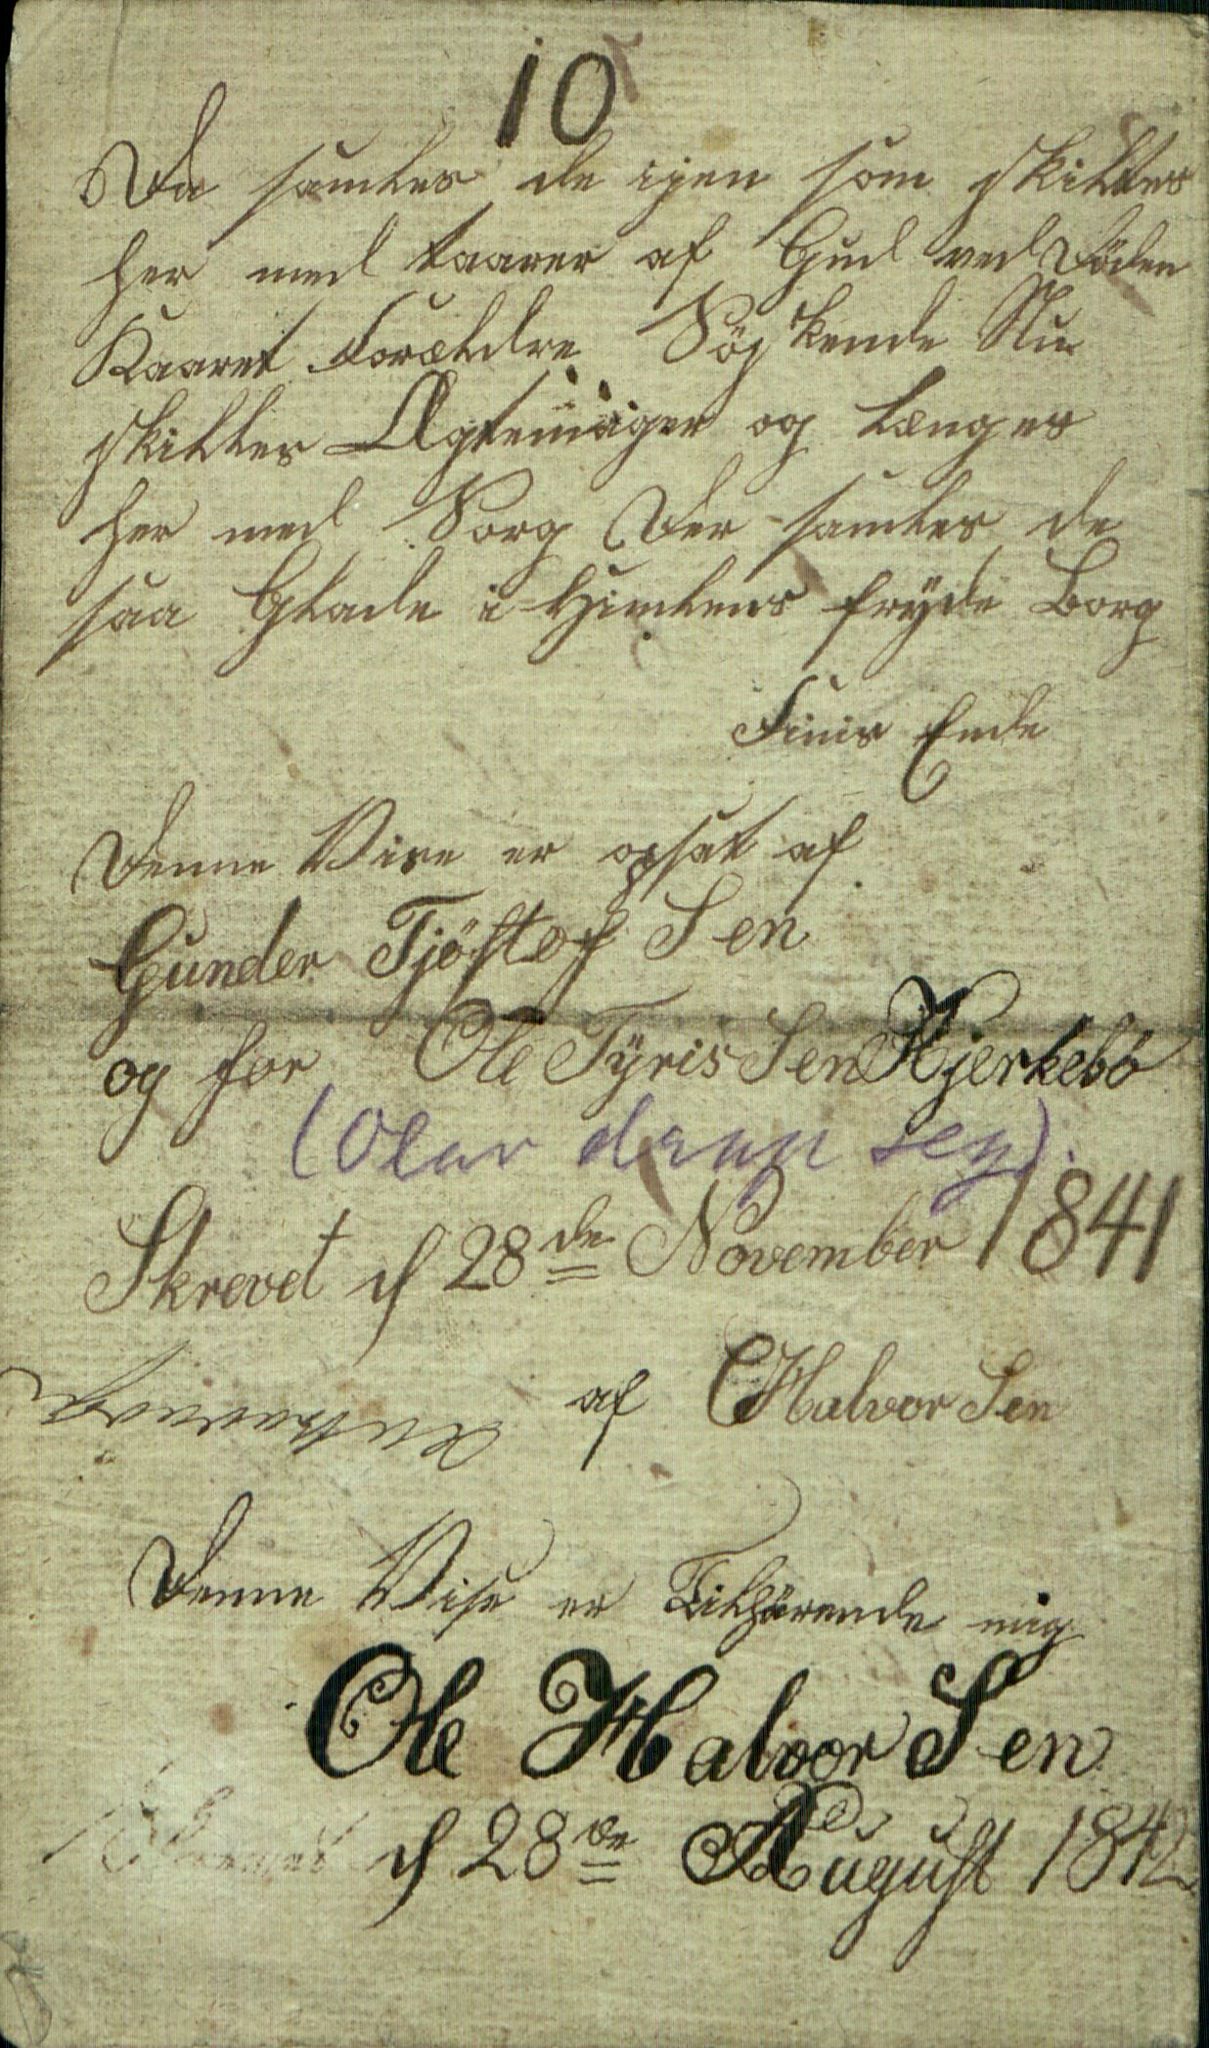 10
Da samles de igen som skilles
her med taarer af Gud ved Döden
Kaaret Forældre Söskende Nu
skilles Ægtemager og længes
her med Sorg Der samles de
saa Glade i Himlens fryde Borg
Finis Ende
Denne Vise er opsat af
Gunder Tjöstof Sen
og for Ole Tyris Sen Kjerkebö
(Olav
Skrevet d 28de November 1841
af Halvor Sen
Denne Vise er Tilhörende mig
Ole Halvor Sen
d 28de August 1842